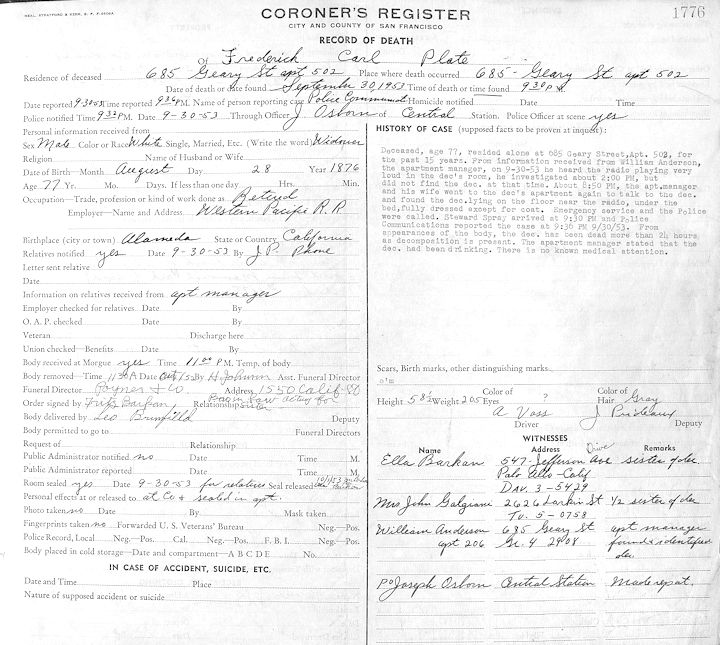 CORONER'S REGISTER
1776
CITY AND COUNTY OF SAN FRANCISCO
RECORD OF DEATH
Of Frederick Carl Plate
Residence of deceased 685 Geary St apt 502 Place where death occurred 685 - Geary St apt 502
Date of death or date found September 30, 1953 Time of death or time found 9 30 P M.
Date reported 9-30-53 Time reported 9 36 P M. Name of person reporting case Police Communicat Homicide notified Date Time
Police notified Time 9 32 P M. Date 9-30-53 Through Officer J. Osborn of Central Station. Police Officer at scene yes
Personal information received from
Sex Male Color or Race White Single, Married, Etc. (Write the word) Widower
Religion Name of Husband or Wife
Date of Birth—Month August Day 28 Year 1876
Age 77 Yr. Mo. Days. If less than one day Hrs. Min.
Occupation—Trade, profession or kind of work done as Retired
Employer—Name and Address Western Pacific R.R
Birthplace (city or town) Alameda State or Country California
Relatives notified yes Date 9-30-53 By J P. Phone
Letter sent relative
Date
Information on relatives received from apt manager
Employer checked for relatives Date By
O. A. P. checked Date By
Veteran Discharge here
Union checked—Benefits Date By
Body received at Morgue yes Time 11 00 P M. Temp. of body
Body removed—Time 11 30 A Date Oct 1/53 By H Johnson Asst. Funeral Director
Funeral Director & Co Address 1550 Calif St
Order signed by Fritz Barkan Relationship Bro in law acting for sister
Body delivered by Leo Deputy
Body permitted to go to Funeral Directors
Request of Relationship
Public Administrator notified no Date Time M.
Public Administrator reported Date Time M.
Room sealed yes Date 9-30-53 for relatives Seal released 10/1/53
Personal effects at or released to at Co & sealed in apt.
Photo taken no Date By Mask taken
Fingerprints taken no Forwarded U. S. Veterans' Bureau Neg.—Pos.
Police Record, Local Neg.—Pos. Cal. Neg.—Pos. F. B. I. Neg.—Pos.
Body placed in cold storage—Date and compartment—A B C D E No.
IN CASE OF ACCIDENT, SUICIDE, ETC.
Date and Time Place
Nature of supposed accident or suicide
HISTORY OF CASE (supposed facts to be proven at inquest):
Deceased, age 77, resided alone at 685 Geary Street, Apt. 502, for
the past 15 years. From information received from William Anderson,
the apartment manager, on 9-30-53 he heard the radio playing very
loud in the dec's room, he investigated about 2:00 PM, but
did not find the dec. at that time. About 8:50 PM, the apt.manager
and his wife went to the dec's apartment again to talk to the dec.
and found the dec.lying on the floor near the radio, under the
bed,fully dressed except for coat. Emergency service and the Police
were called. Steward Spray arrived at 9:30 PM and Police
Communications reported the case at 9:36 PM 9/30/53. From
appearances of the body, the dec. has been dead more than 24 hours
as decomposition is present. The apartment manager stated that the
dec. had been drinking. There is no known medical attention.
Scars, Birth marks, other distinguishing marks
o'm
Height 5 8½ Weight 205 Color of Eyes ? Color of Hair Gray
A Voss Driver J Prideaux Deputy
WITNESSES
Name Address Remarks
Ella Barkan 547-Jefferson Drive Ave sister of dec
Palo Alto-Calif
DAv. 3-5429
Mrs John Galgiani 2626 Larkin St ½ sister of dec
Tu. 5-0758
William Anderson 685 Geary St apt manager
apt 206 Gr. 4 2908 found & identified
dec.
Po Joseph Osborn Central Station Made report.